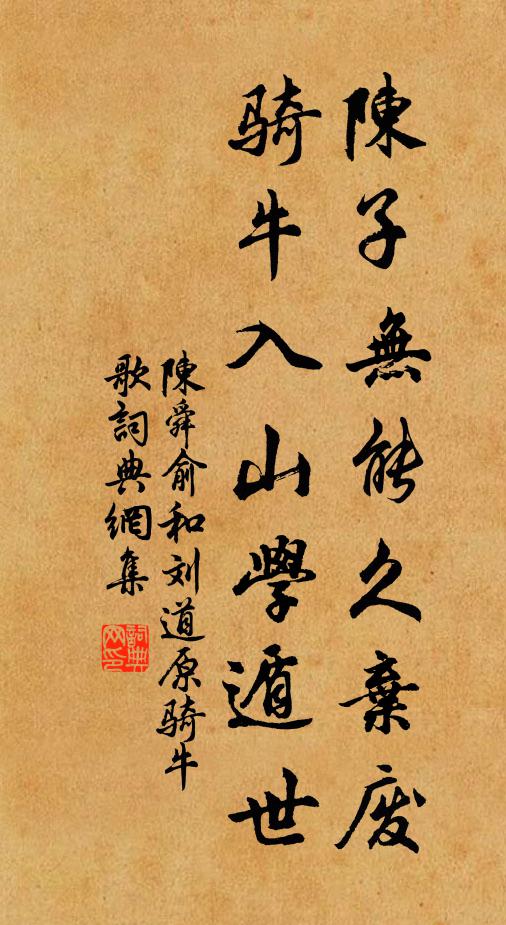 陳子無能久棄废
骑牛入山學遁世
陳舜俞和刘道原骑牛
歌詞典網集
詞典网印